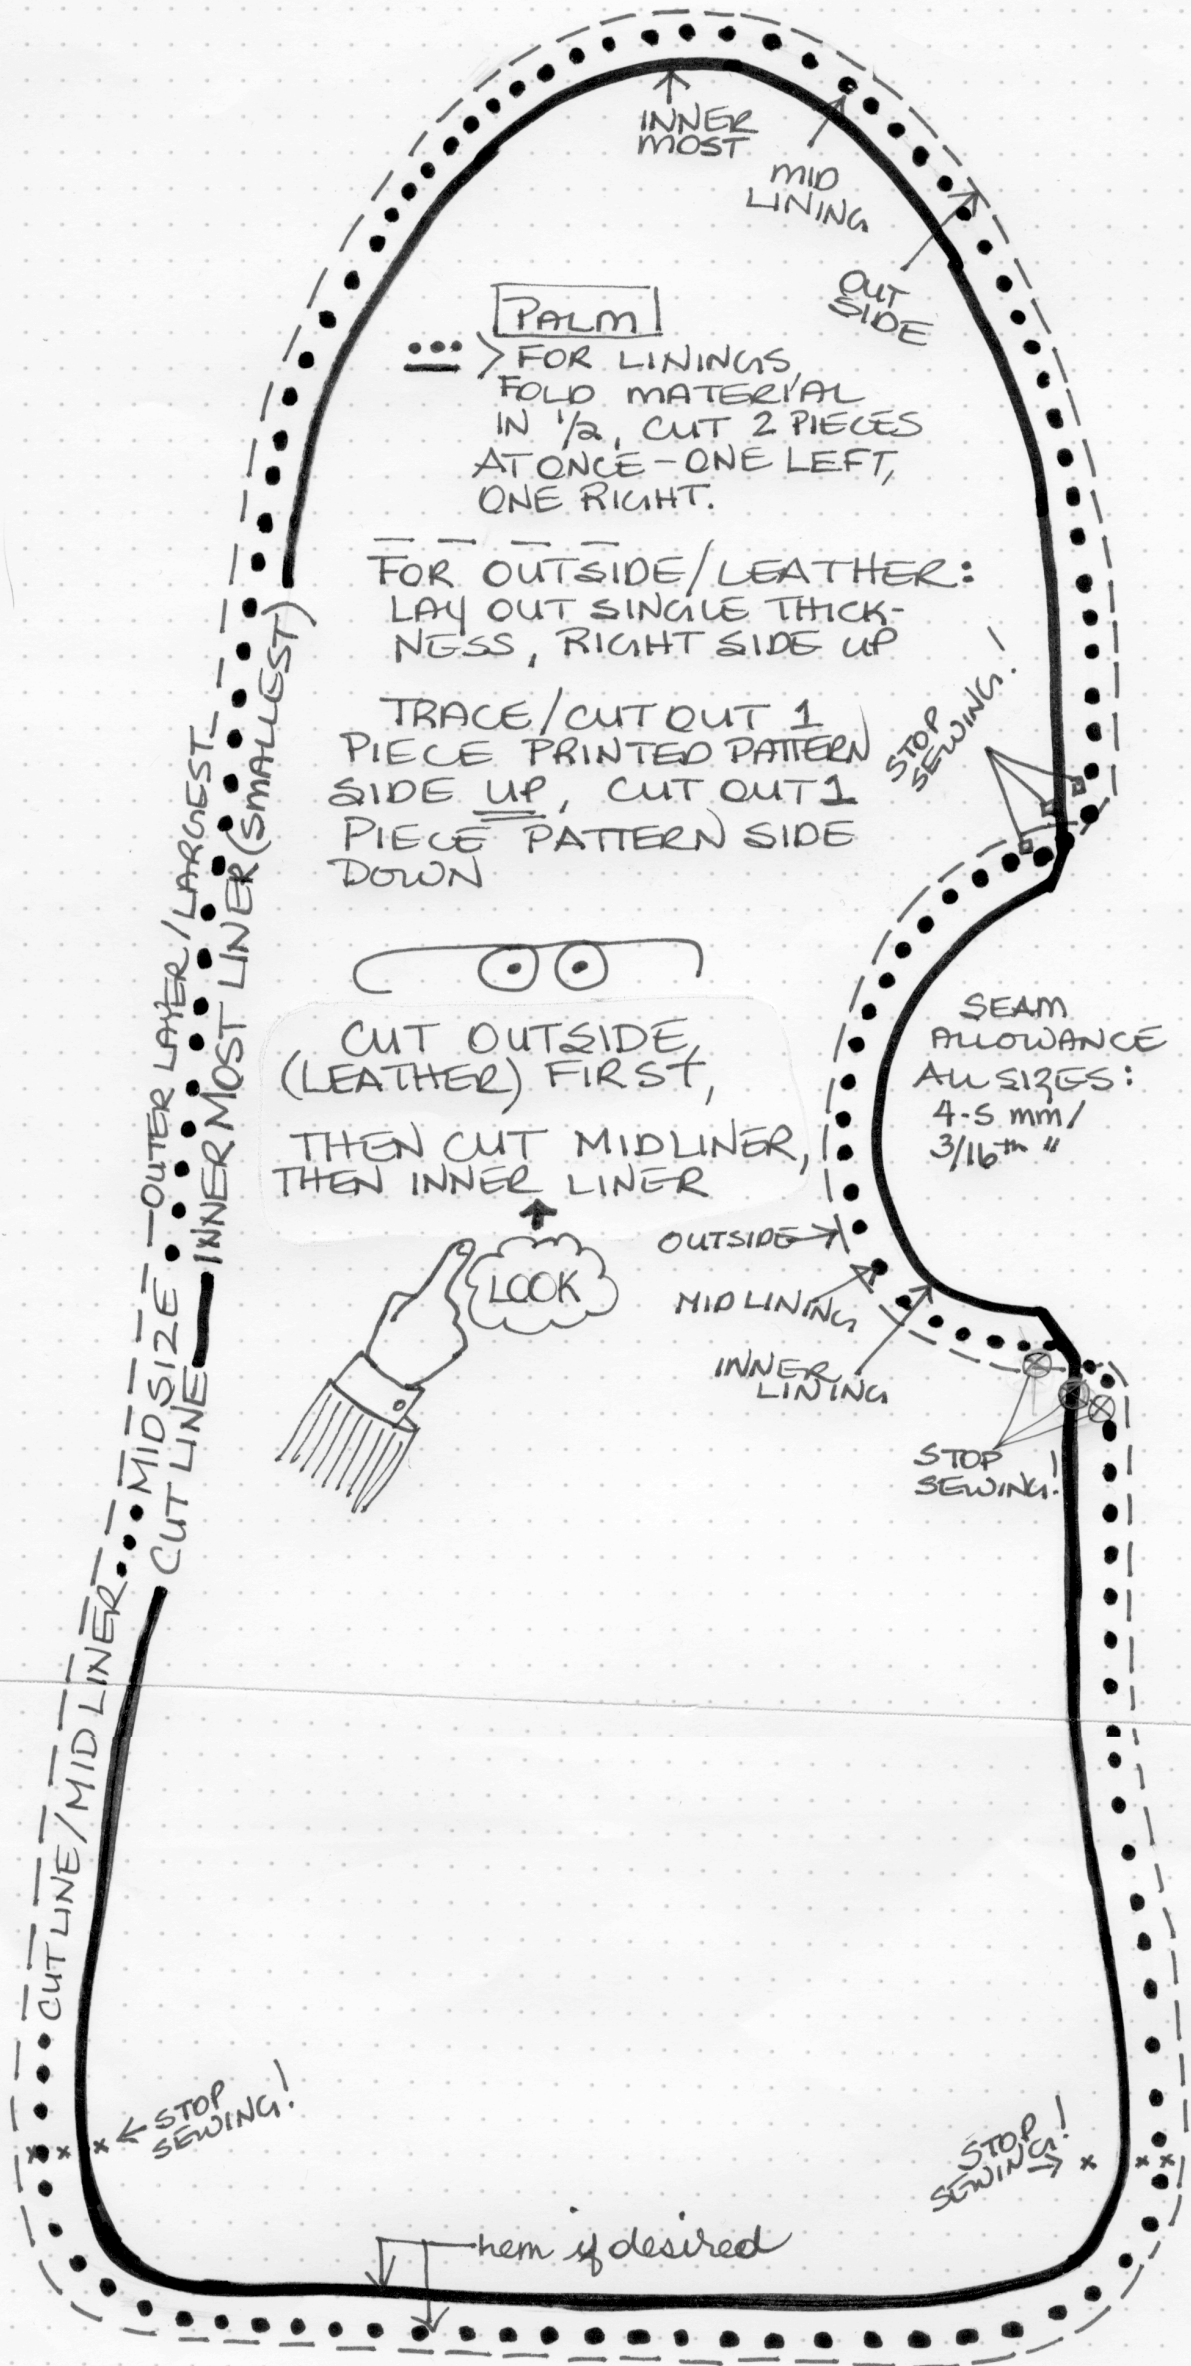 INNER
MOST
MID
LINING
OUT
SIDE
PALM
FOR LININGS,
FOLD MATERIAL
IN 1/2, CUT 2 PIECES
AT ONCE - ONE LEFT,
ONE RIGHT.
FOR OUTSIDE/LEATHER:
LAY OUT SINGLE THICK-
NESS, RIGHT SIDE UP
TRACE/CUT OUT 1
PIECE PRINTED PATTERN
SIDE UP, CUT OUT 1
PIECE PATTERN SIDE
DOWN
STOP
SEWING!
CUT OUTSIDE,
(LEATHER) FIRST,
THEN CUT MIDLINER,
THEN INNER LINER
LOOK
SEAM
ALLOWANCE
ALL SIZES:
4-5 mm/
3/16th "
OUTSIDE
MID LINING
INNER
LINING
STOP
SEWING!
OUTER LAYER/LARGEST
CUT LINE INNER MOST LINER (SMALLEST)
CUT LINE/MID LINER MID SIZE
STOP
SEWING!
STOP
SEWING!
hem if desired